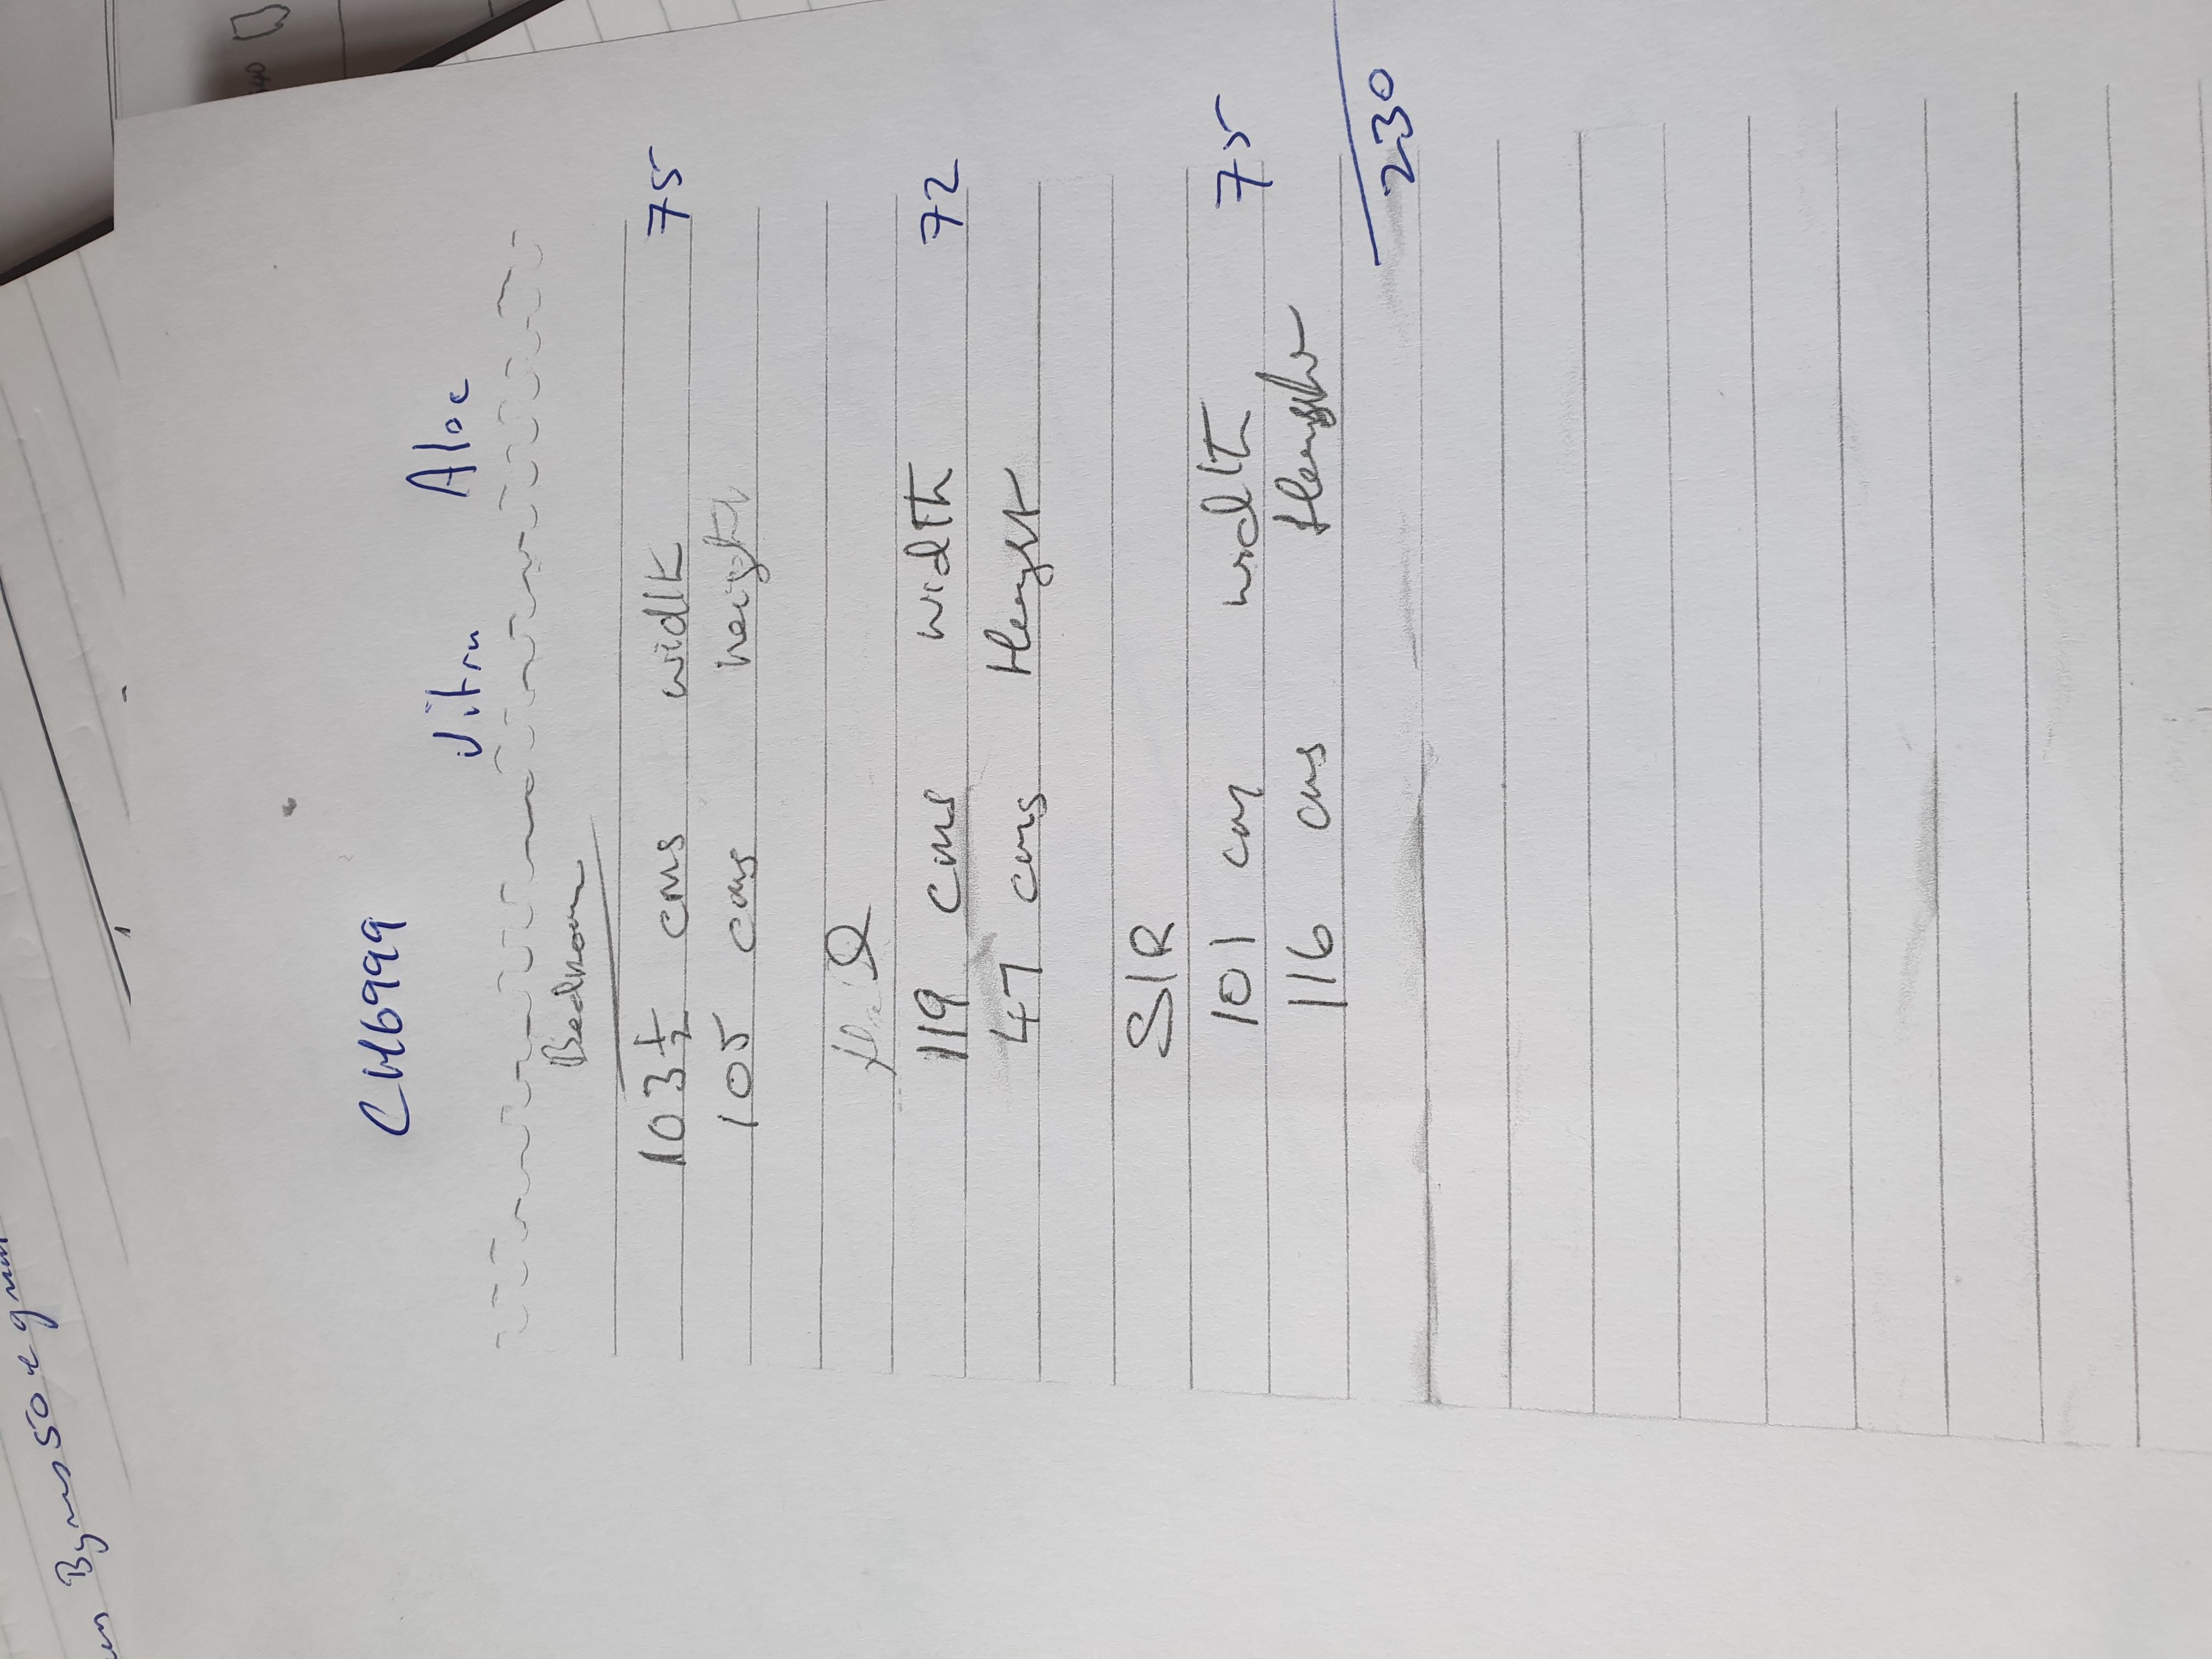 CH6999
Vitra Aloe
Bedroom
103½ cms width 75
105 cms height
119 cms width 72
47 cms Height
SIR
101 cm width 75
116 cms Height
230